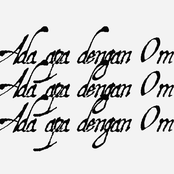 Ada apa dengan Om
Ada apa dengan Om
Ada apa dengan Om